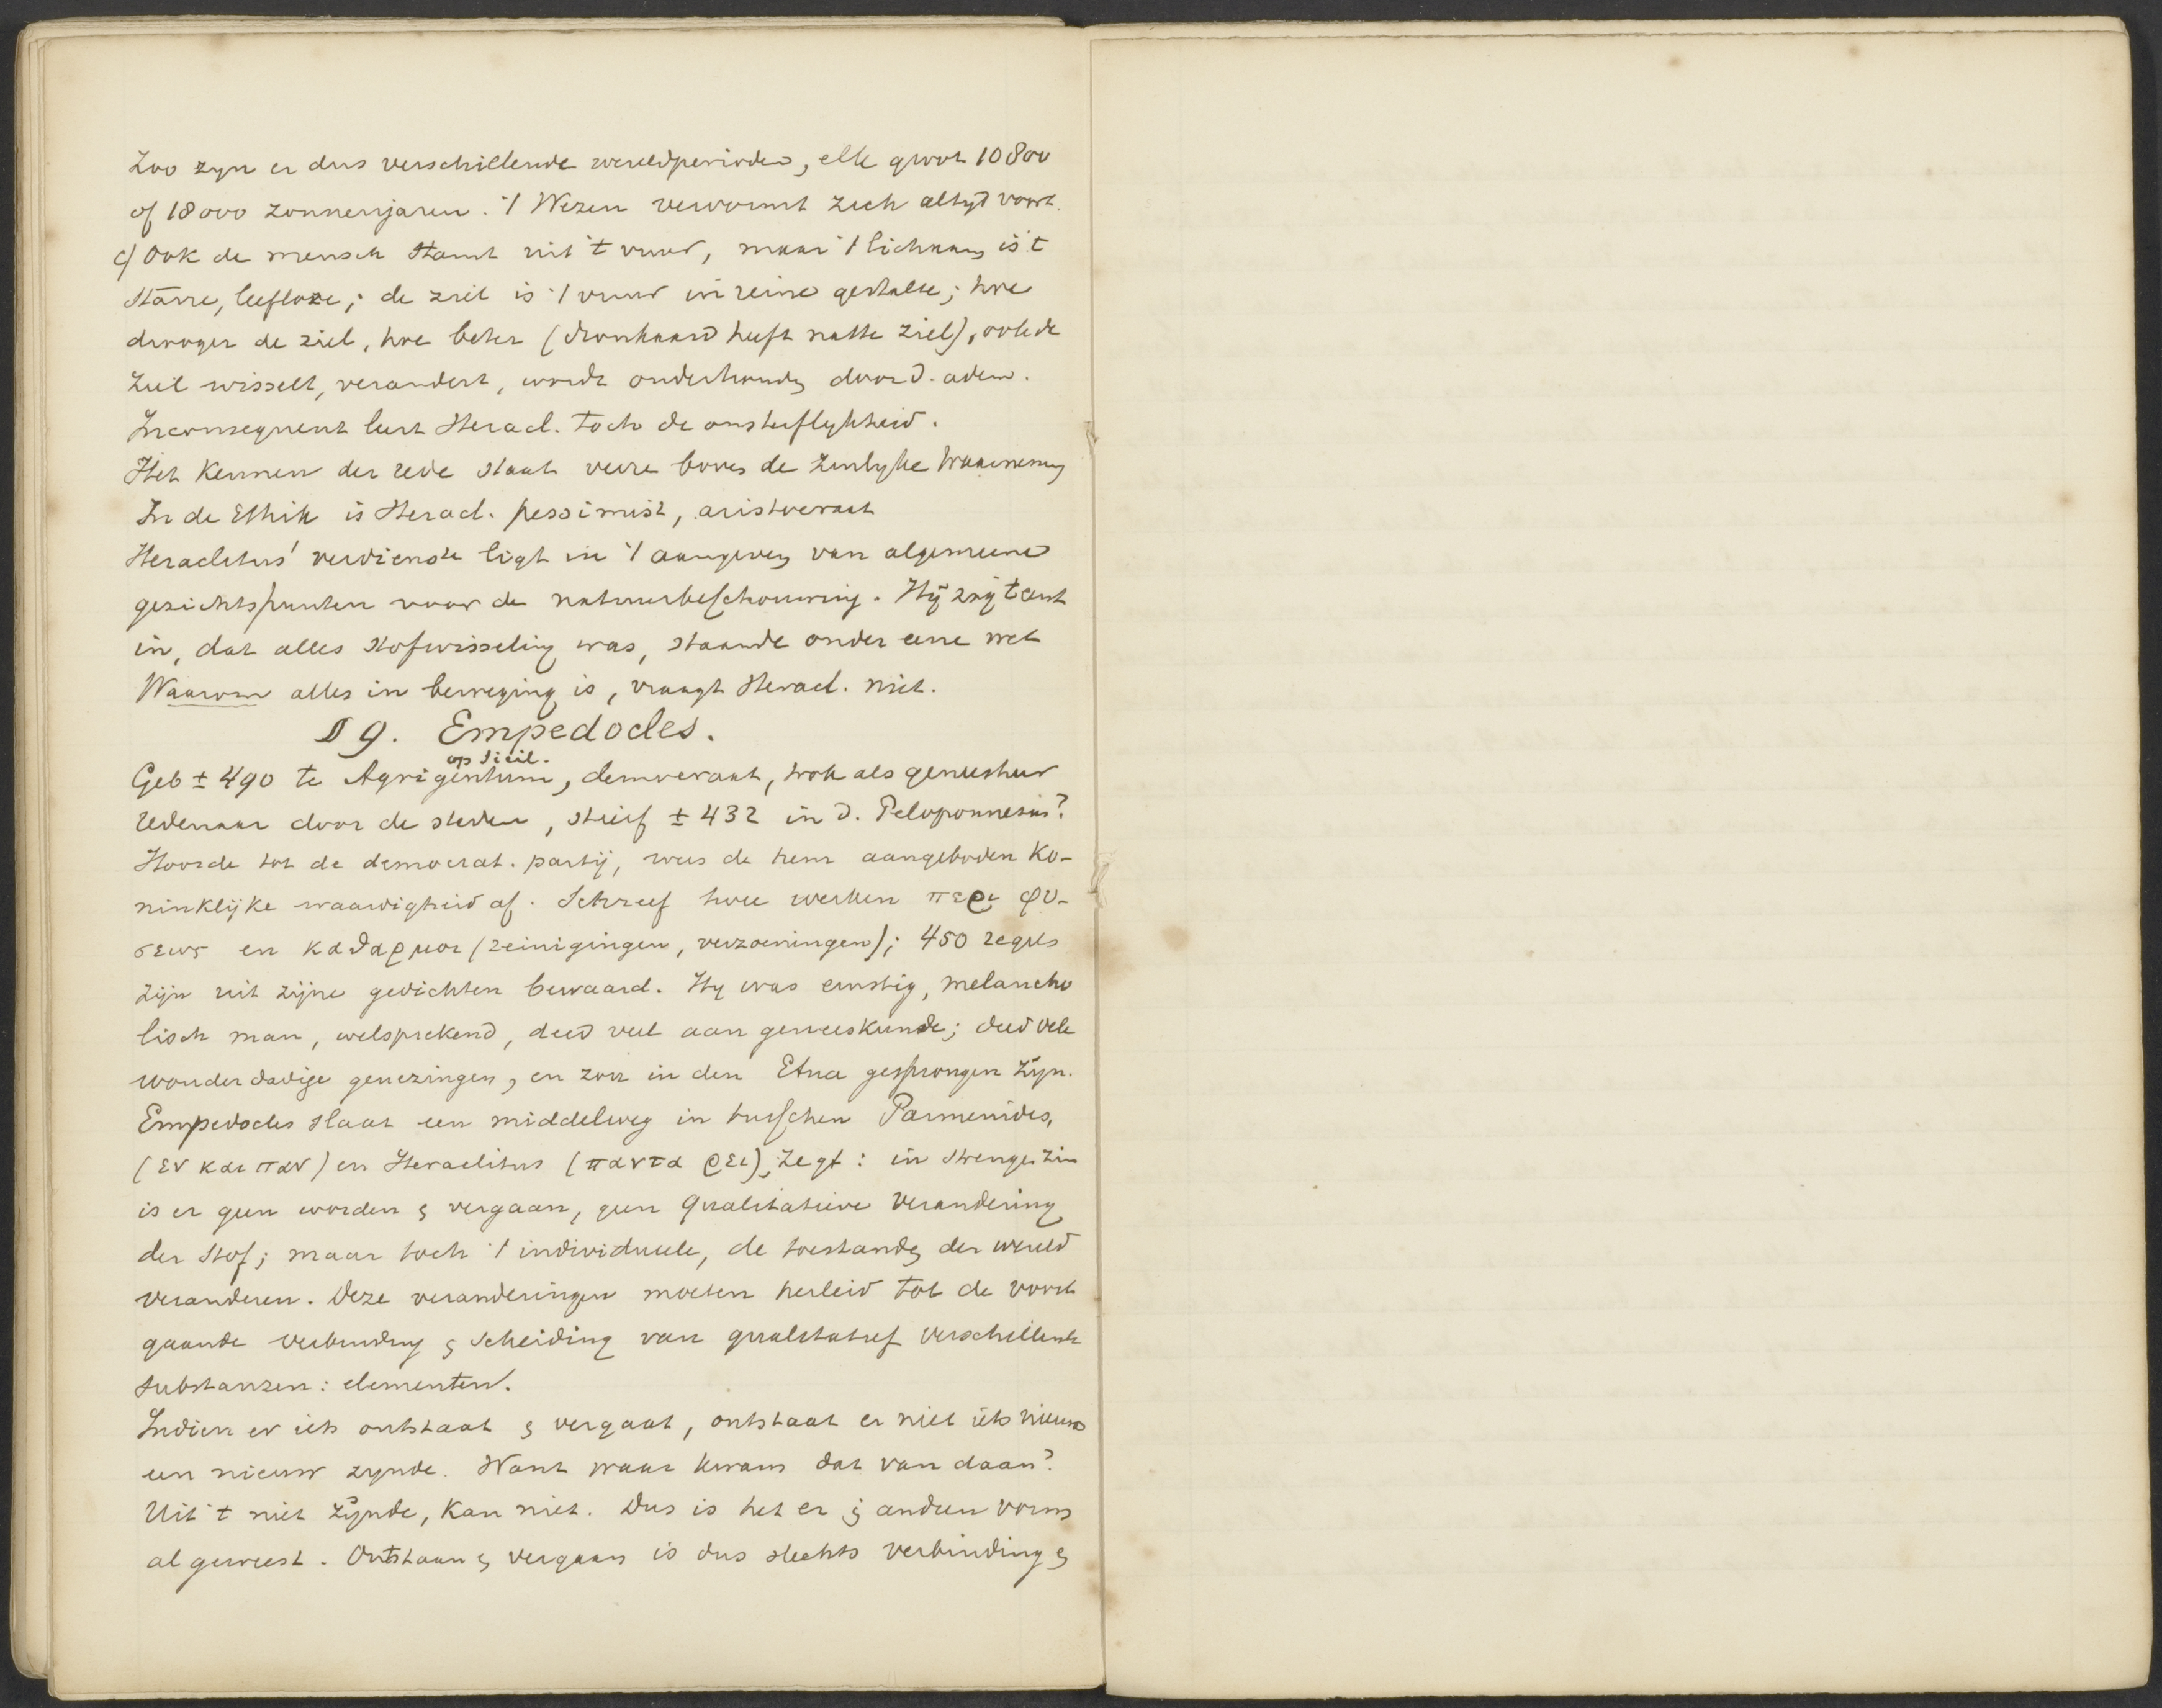 Zoo zyn er dus verschillende wereldperioden, elk groot 10800
of 18000 zonnenjaren. 't Wezen vervormt zich altyd voort.
c) Ook de mensch stamt uit 't vuur, maar 't lichaam is 't
starre, leeflooze; de ziel is 't vuur in reine gestalte; hoe
drooger de ziel, hoe beter (dronkaard heeft natte ziel), ook de
ziel wisselt, verandert, wordt onderhouden door d. adem.
Inconsequent leert Heracl. toch de onsterflykheid.
Het kennen der rede staat verre boven de zinlyke waarneming
In de Ethik is Heracl. pessimist, aristocraat
Heraclitus' verdienste ligt in 't aangeven van algemeene
gezichtspunten voor de natuurbeschouwing. Hij zag 't eerst
in, dat alles stofwisseling was, staande onder eene wet
Waarom alles in beweging is, vraagt Heracl. niet.
§ 9. Empedocles.
op Sicil.
Geb ± 490 te Agrigentum, democraat, trok als genesheer
redenaar door de steden, stierf ± 432 in d. Peloponnesus?
Hoorde tot de democrat. partij, wees de hem aangeboden ko-
ninklijke waardigheid af. Schreef twee werken περι φυ-
σεως en καθαρμοι (reinigingen, verzoeningen); 450 regels
zijn uit zijne gedichten bewaard. Hy was ernstig, melancho
lisch man, welsprekend, deed veel aan geneeskunde; deed vele
wonderdadige genezingen, en zou in den Etna gesprongen zijn.
Empedocles slaat een middelweg in tusschen Parmenides,
(εν και παν) en Heraclitus (παντα ρει), zegt: in strengen zin
is er geen worden & vergaan, geen qualitatieve verandering
der stof; maar toch 't individueele, de toestanden der wereld
veranderen. Deze veranderingen moeten herleid tot de voort
gaande verbinding & scheiding van qualitatief verschillende
substanzen: elementen.
Indien er iets ontstaat & vergaat, ontstaat er niet iets nieuws
een nieuw zynde. Want waar kwam dat van daan?
Uit 't niet zijnde, kan niet. Dus is het er in anderen vorm
al geweest. Ontstaan & vergaan is dus slechts verbinding &